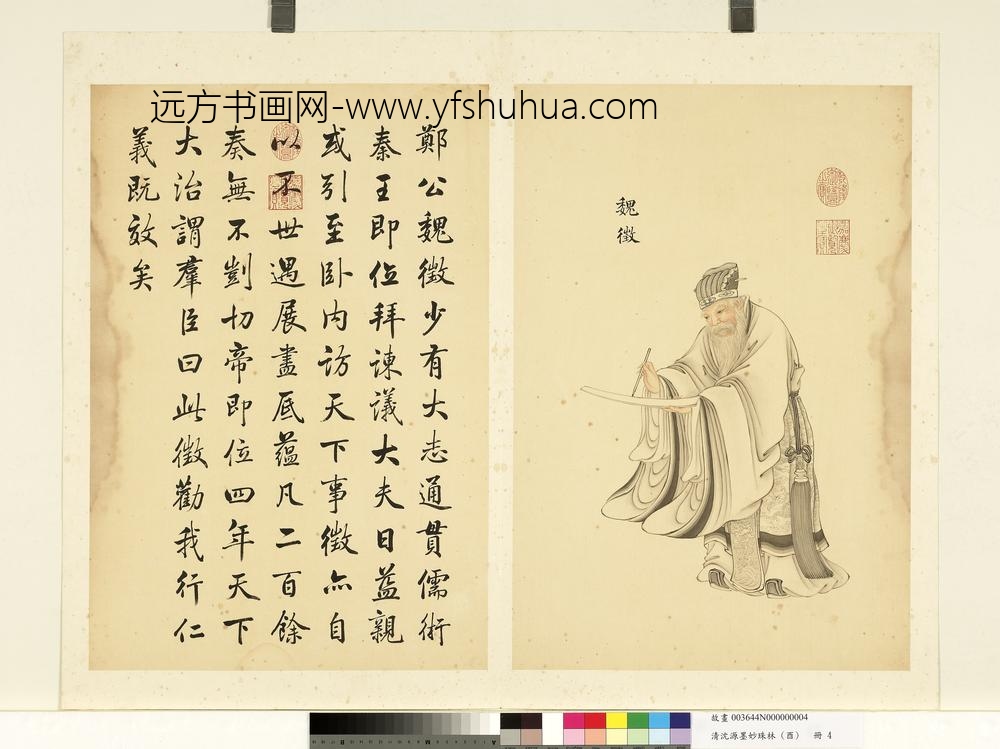 远方书画网-www.yfshuhua.com
魏徵
鄭公魏徵少有大志通貫儒術
秦王即位拜諫議大夫日益親
或引至卧内訪天下事徵亦自
以不世遇展盡底蘊凡二百餘
奏無不剴切帝即位四年天下
大治謂羣臣曰此徵勸我行仁
義既效矣
故畫 003644N000000004
清沈源墨妙珠林（酉） 冊 4